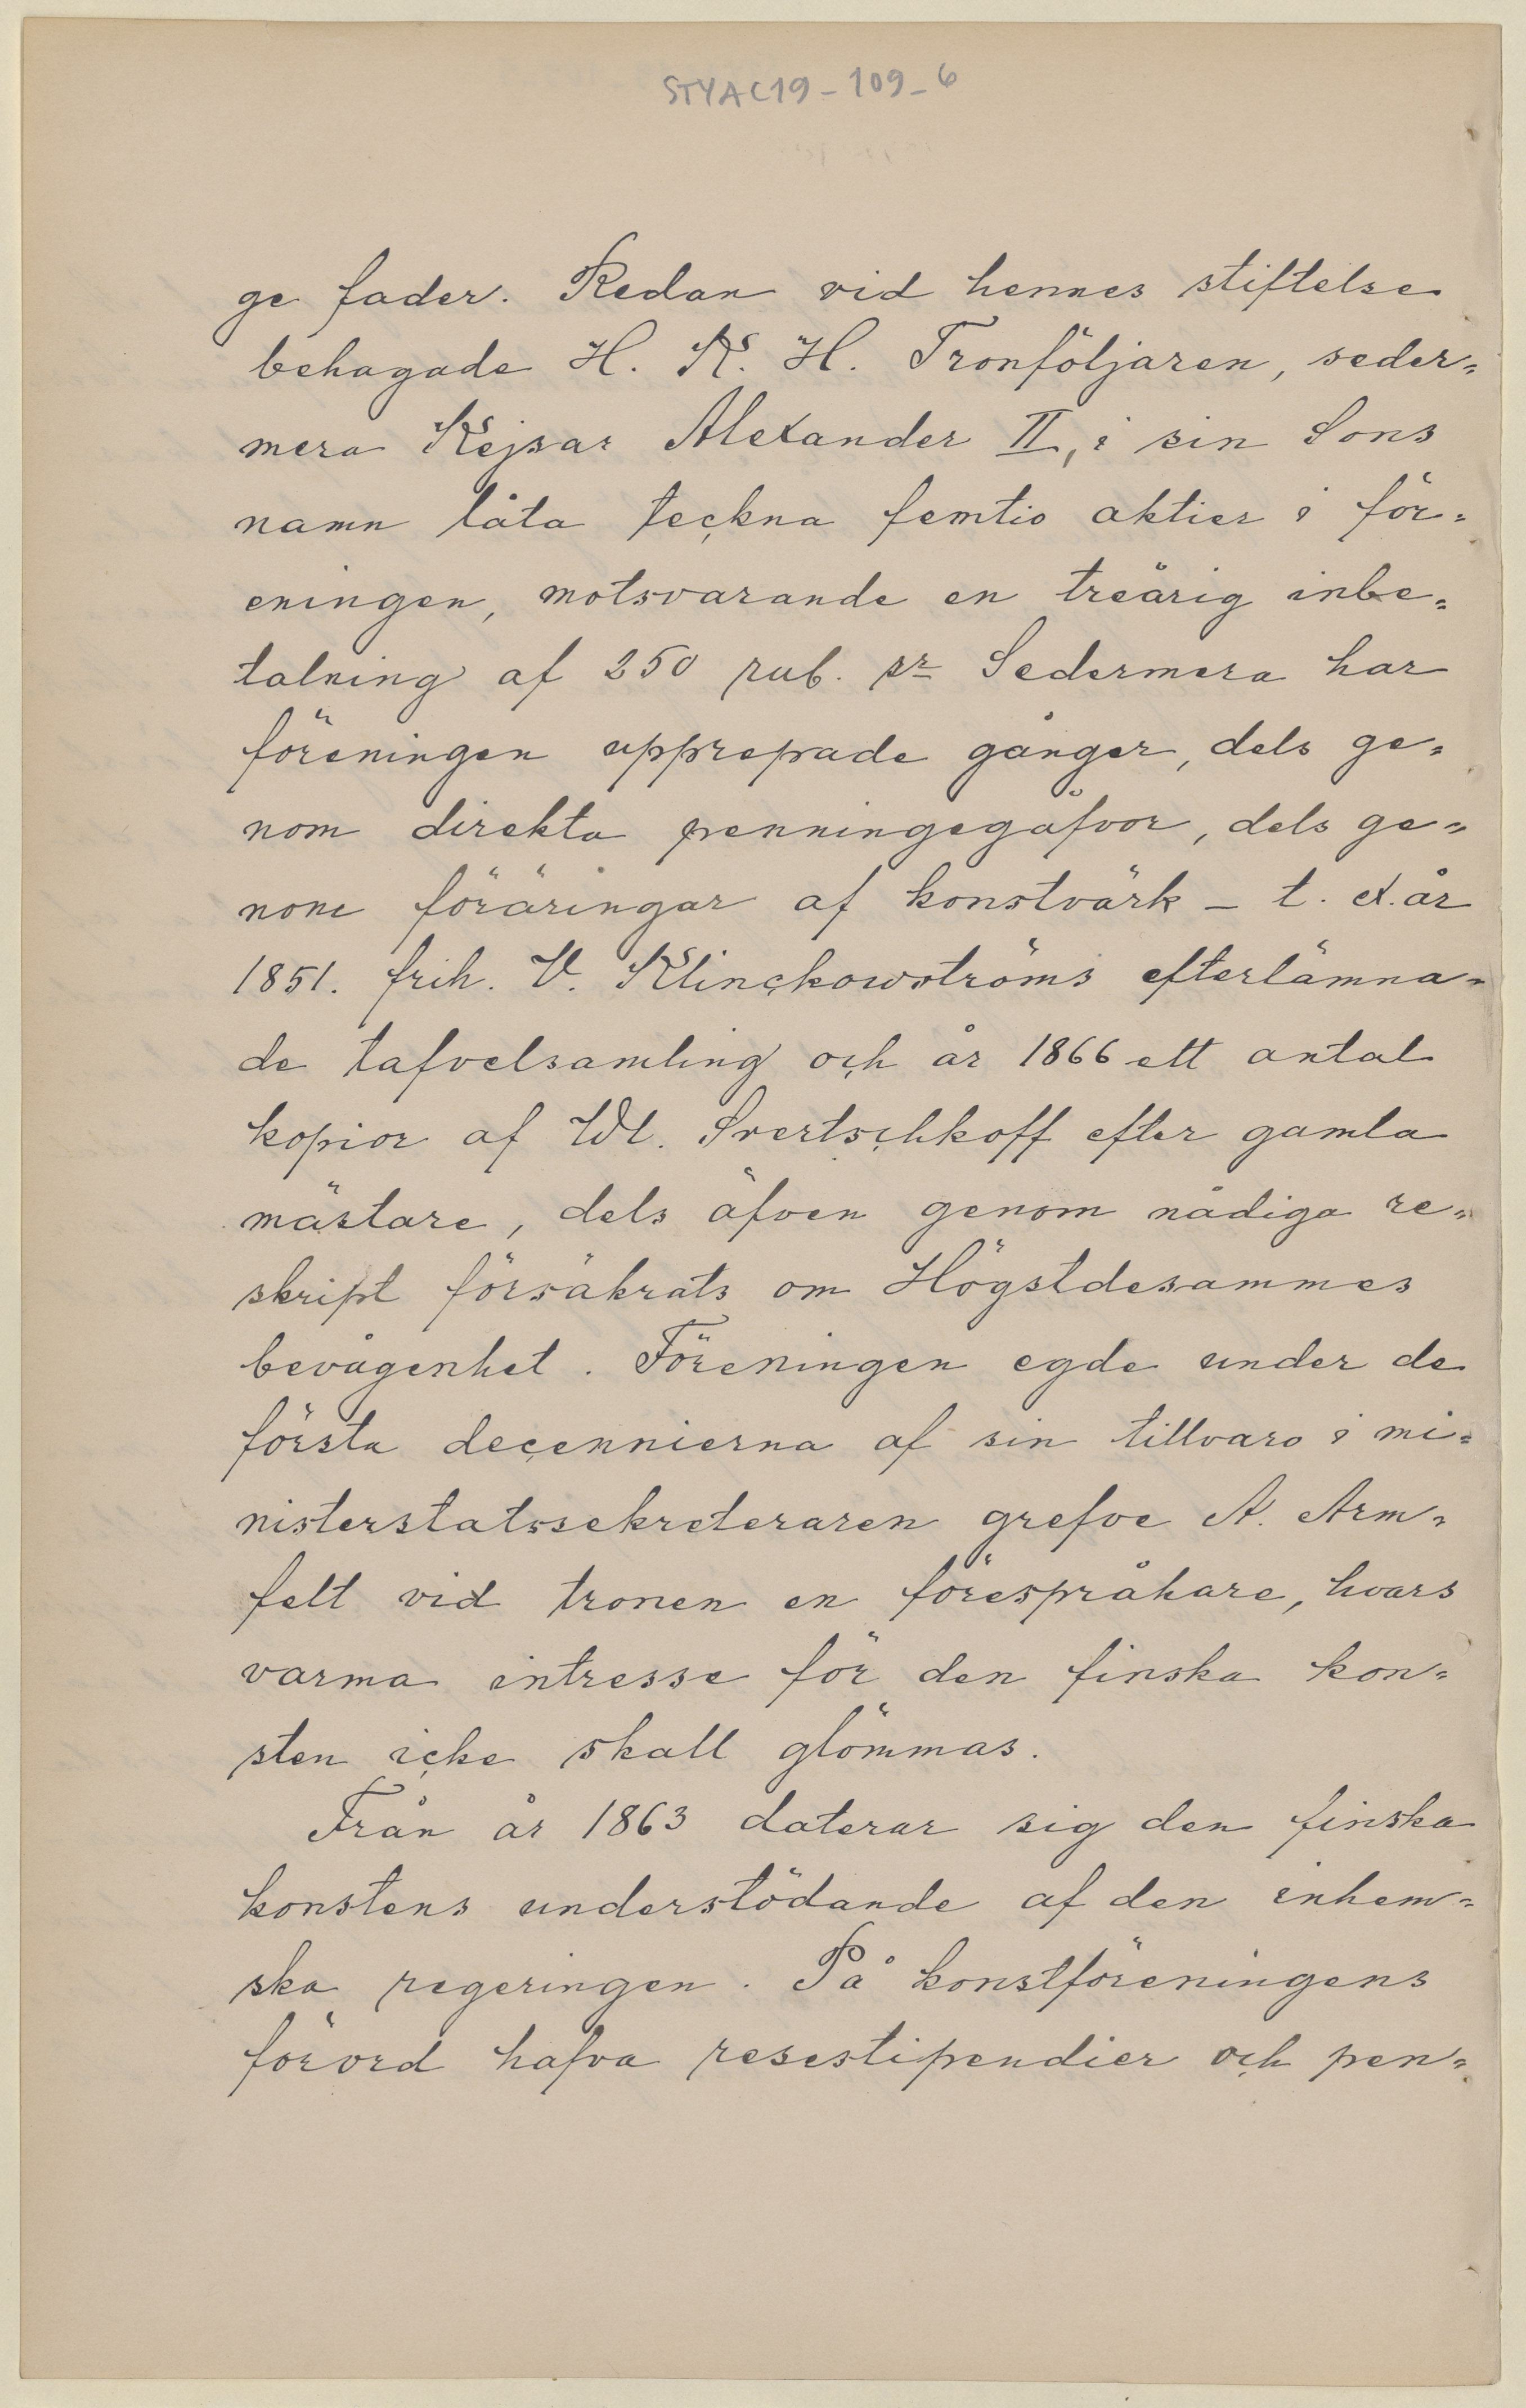 STYAC19-109-6
ge fader. Redan vid hennes stiftelse
behagade H. K. H. Tronföljaren, seder=
mera Kejsar Alexander II, i sin Sons
namn låta teckna femtio aktier i för=
eningen, motsvarande en treårig inbe=
talning af 250 rub. sr Sedermera har
föreningen upprepade gånger, dels ge=
nom direkta penningegåfvor, dels ge=
nom föräringar af konstvärk – t. ex. år
1851. frih. V. Klinckowströms efterlämna=
de tafvelsamling och år 1866 ett antal
kopior af Wl. Svertschkoff efter gamla
mästare, dels äfven genom nådiga re=
skript försäkrats om Högstdesammes
bevågenhet. Föreningen egde under de
första decennierna af sin tillvaro i mi=
nisterstatssekreteraren grefve A. Arm=
felt vid tronen en förespråkare, hvars
varma intresse för den finska kon=
sten icke skall glömmas.
Från år 1863 daterar sig den finska
konstens understödande af den inhem=
ska regeringen. På konstföreningens
förord hafva resestipendier och pen=